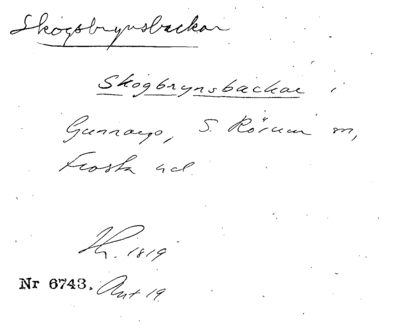 Skogsbrynsbackar
Skogbrynsbackar i
Gunnarp, S. Rörum sn,
Frosta hd.
Th. 1819
Nr 6743. Ant 19